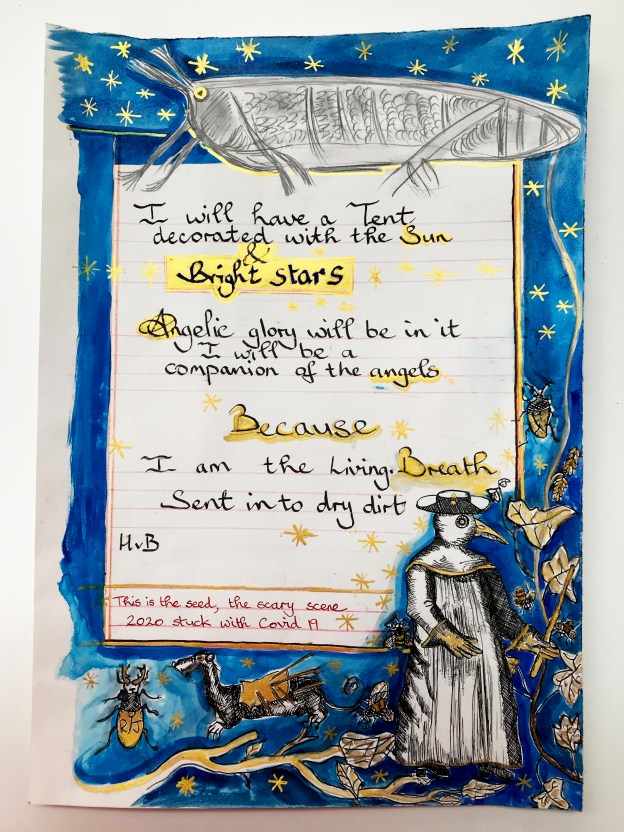 I will have a Tent
decorated with the Sun
&
Bright stars
Angelic glory will be in it
I will be a
companion of the angels
Because
I am the Living. Breath
Sent into dry dirt
HvB
This is the seed, the scary scene
2020 stuck with Covid 19